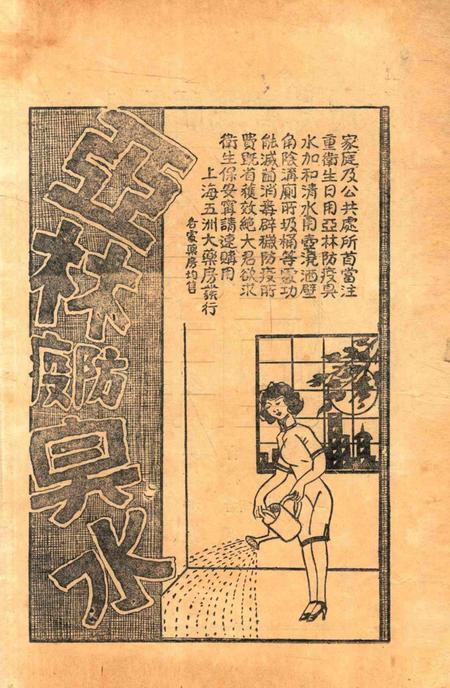 家庭及公共處所首當注
重衛生日用亞林防疫臭
水加和清水用壺澆洒壁
角陰溝厠所圾桶等處功
能滅菌消毒辟穢防疫所
費旣省獲效絕大君欲求
衛生保安寗請速購用
上海五洲大藥房發行
各家藥房均售
亞林防疫臭水